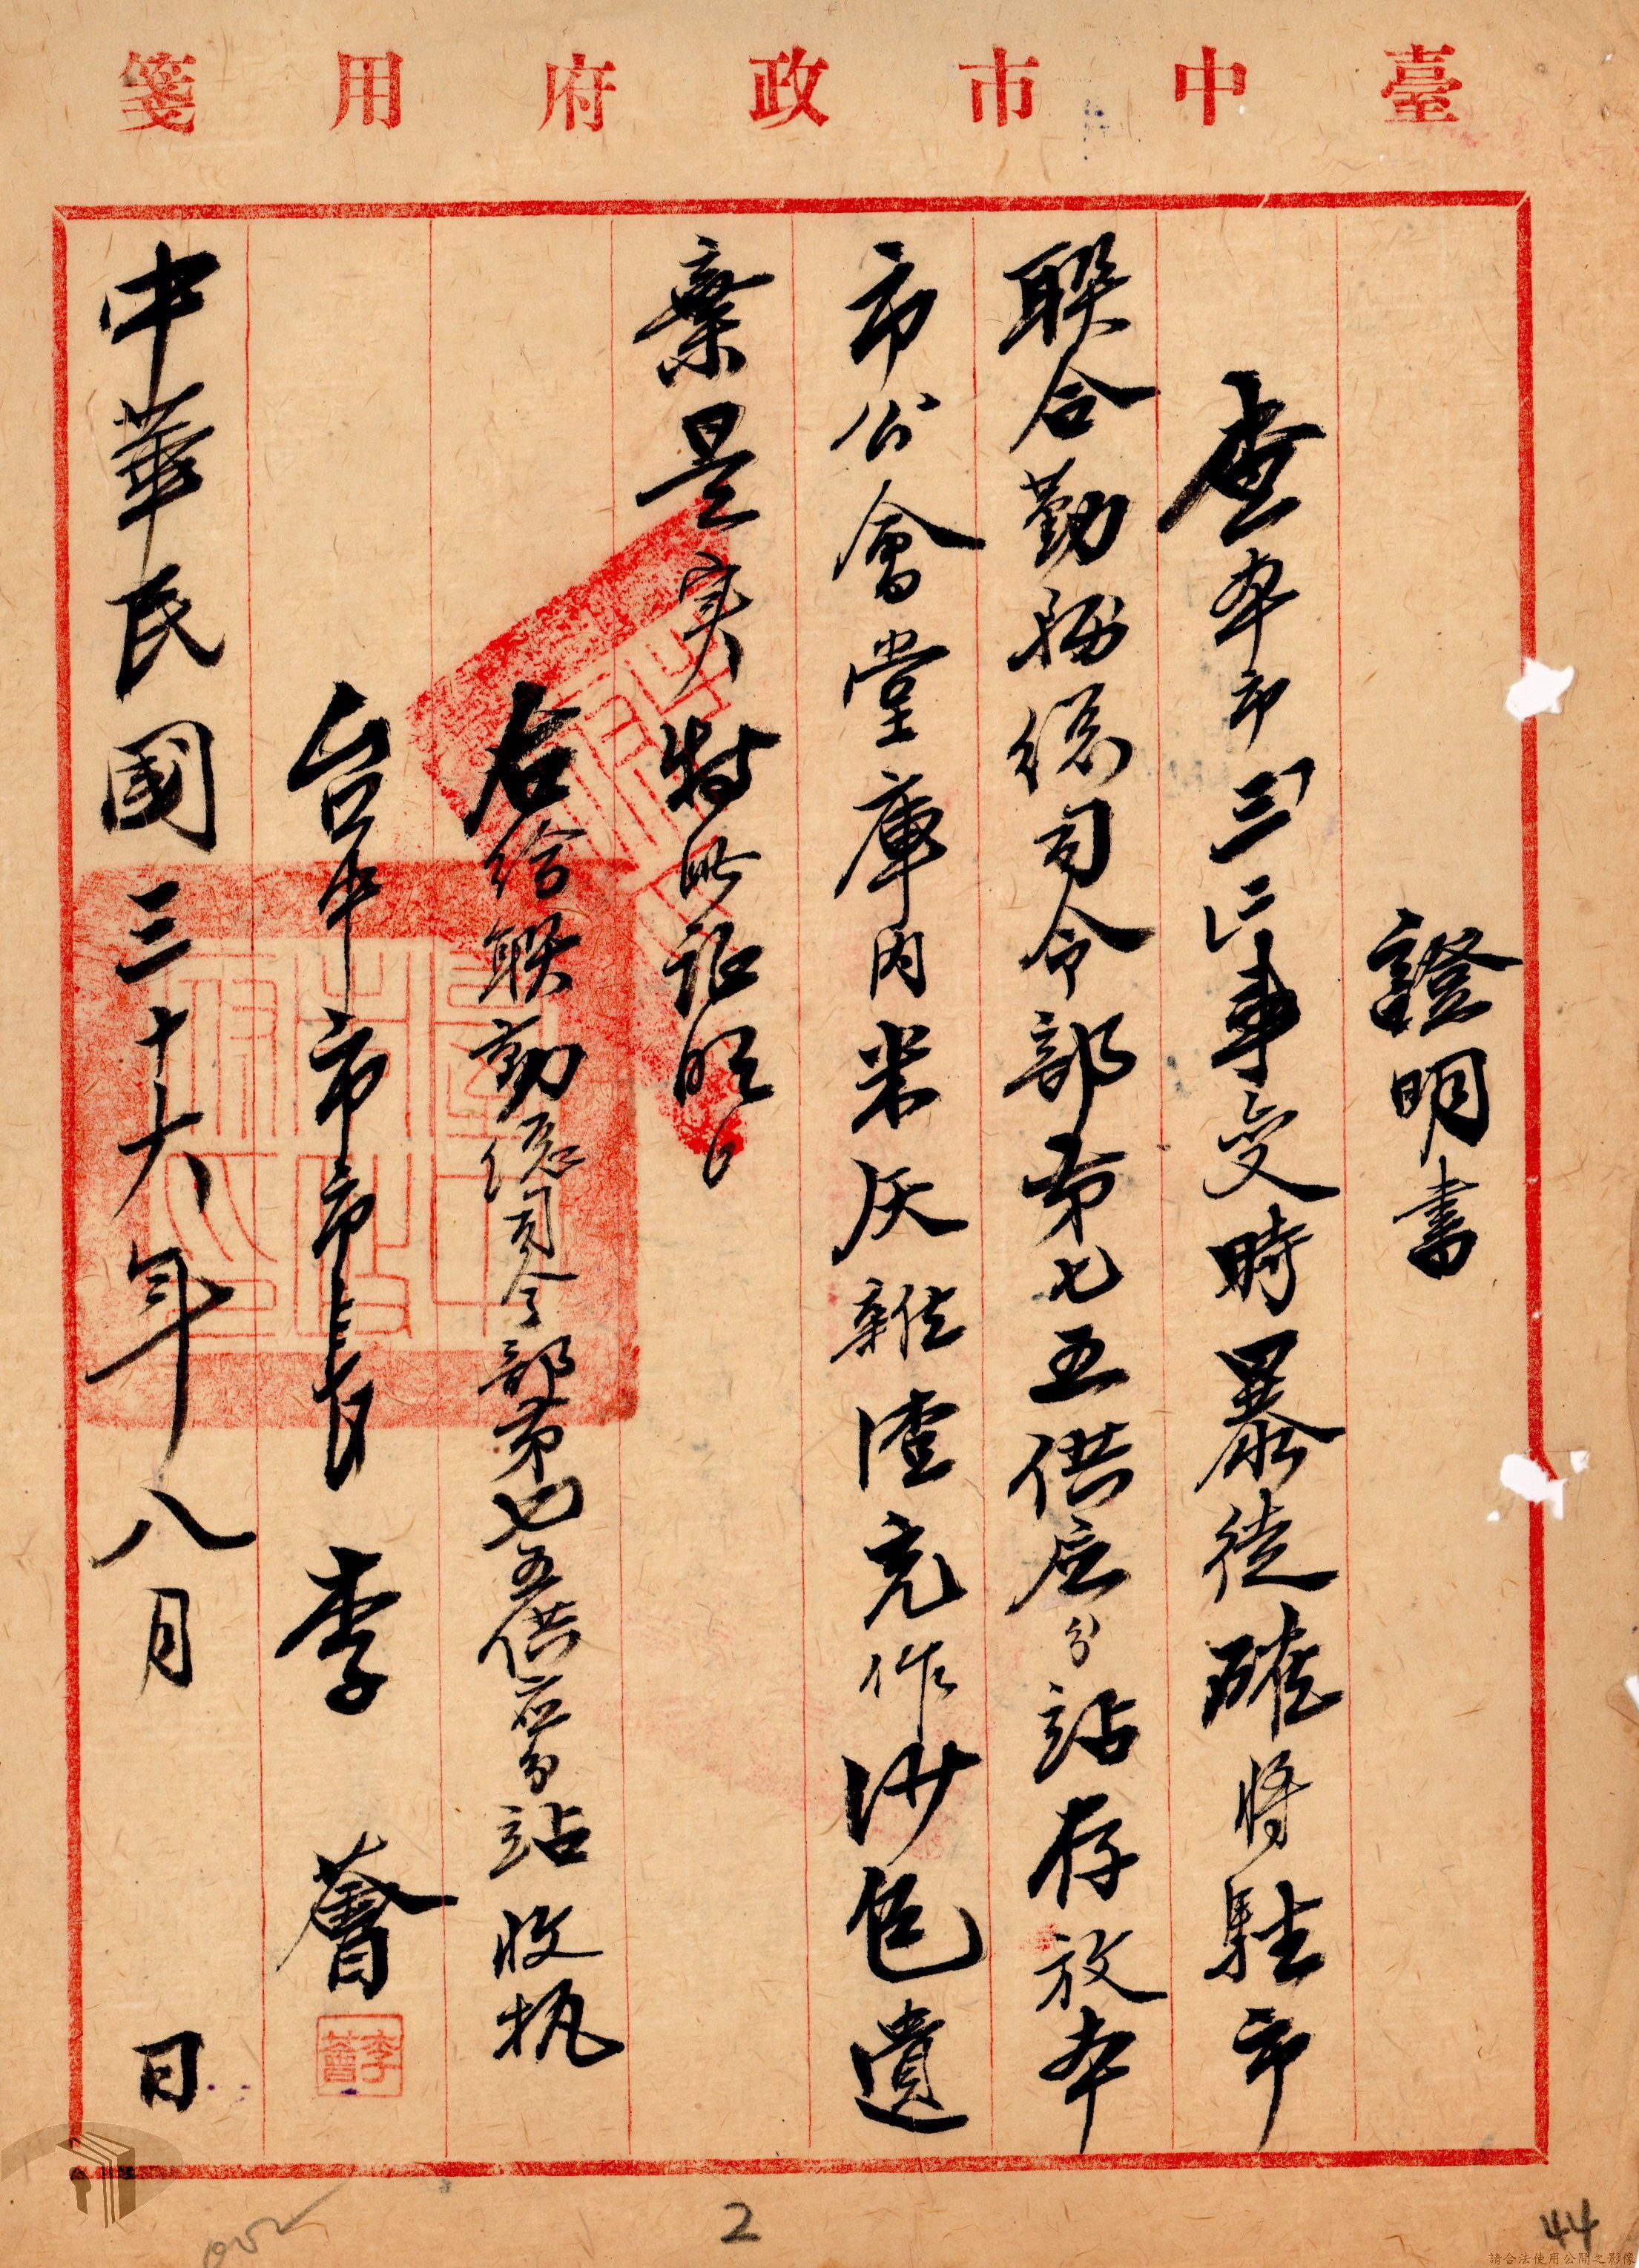 臺中市政府用箋
證明書
查本市「三二」事变時暴徒確將駐市
联合勤務総司令部第七五供应分站存放本
市公會堂庫内米灰雜渣充作沙包遺
棄是实特此証明
右給联勤総司令部第七五供应分站收执
台中市市長 李薈
李薈
中華民國三十六年八月 日
2
44
請合法使用公開之影像